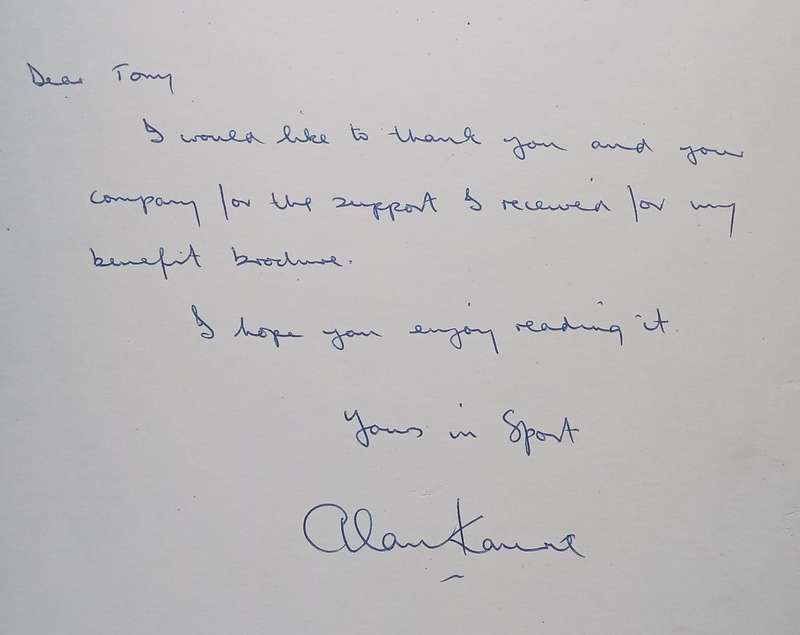 Dear Tony
I would like to thank you and your
company for the support I received for my
benefit brochure.
I hope you enjoy reading it.
Yours in Sport
Alan